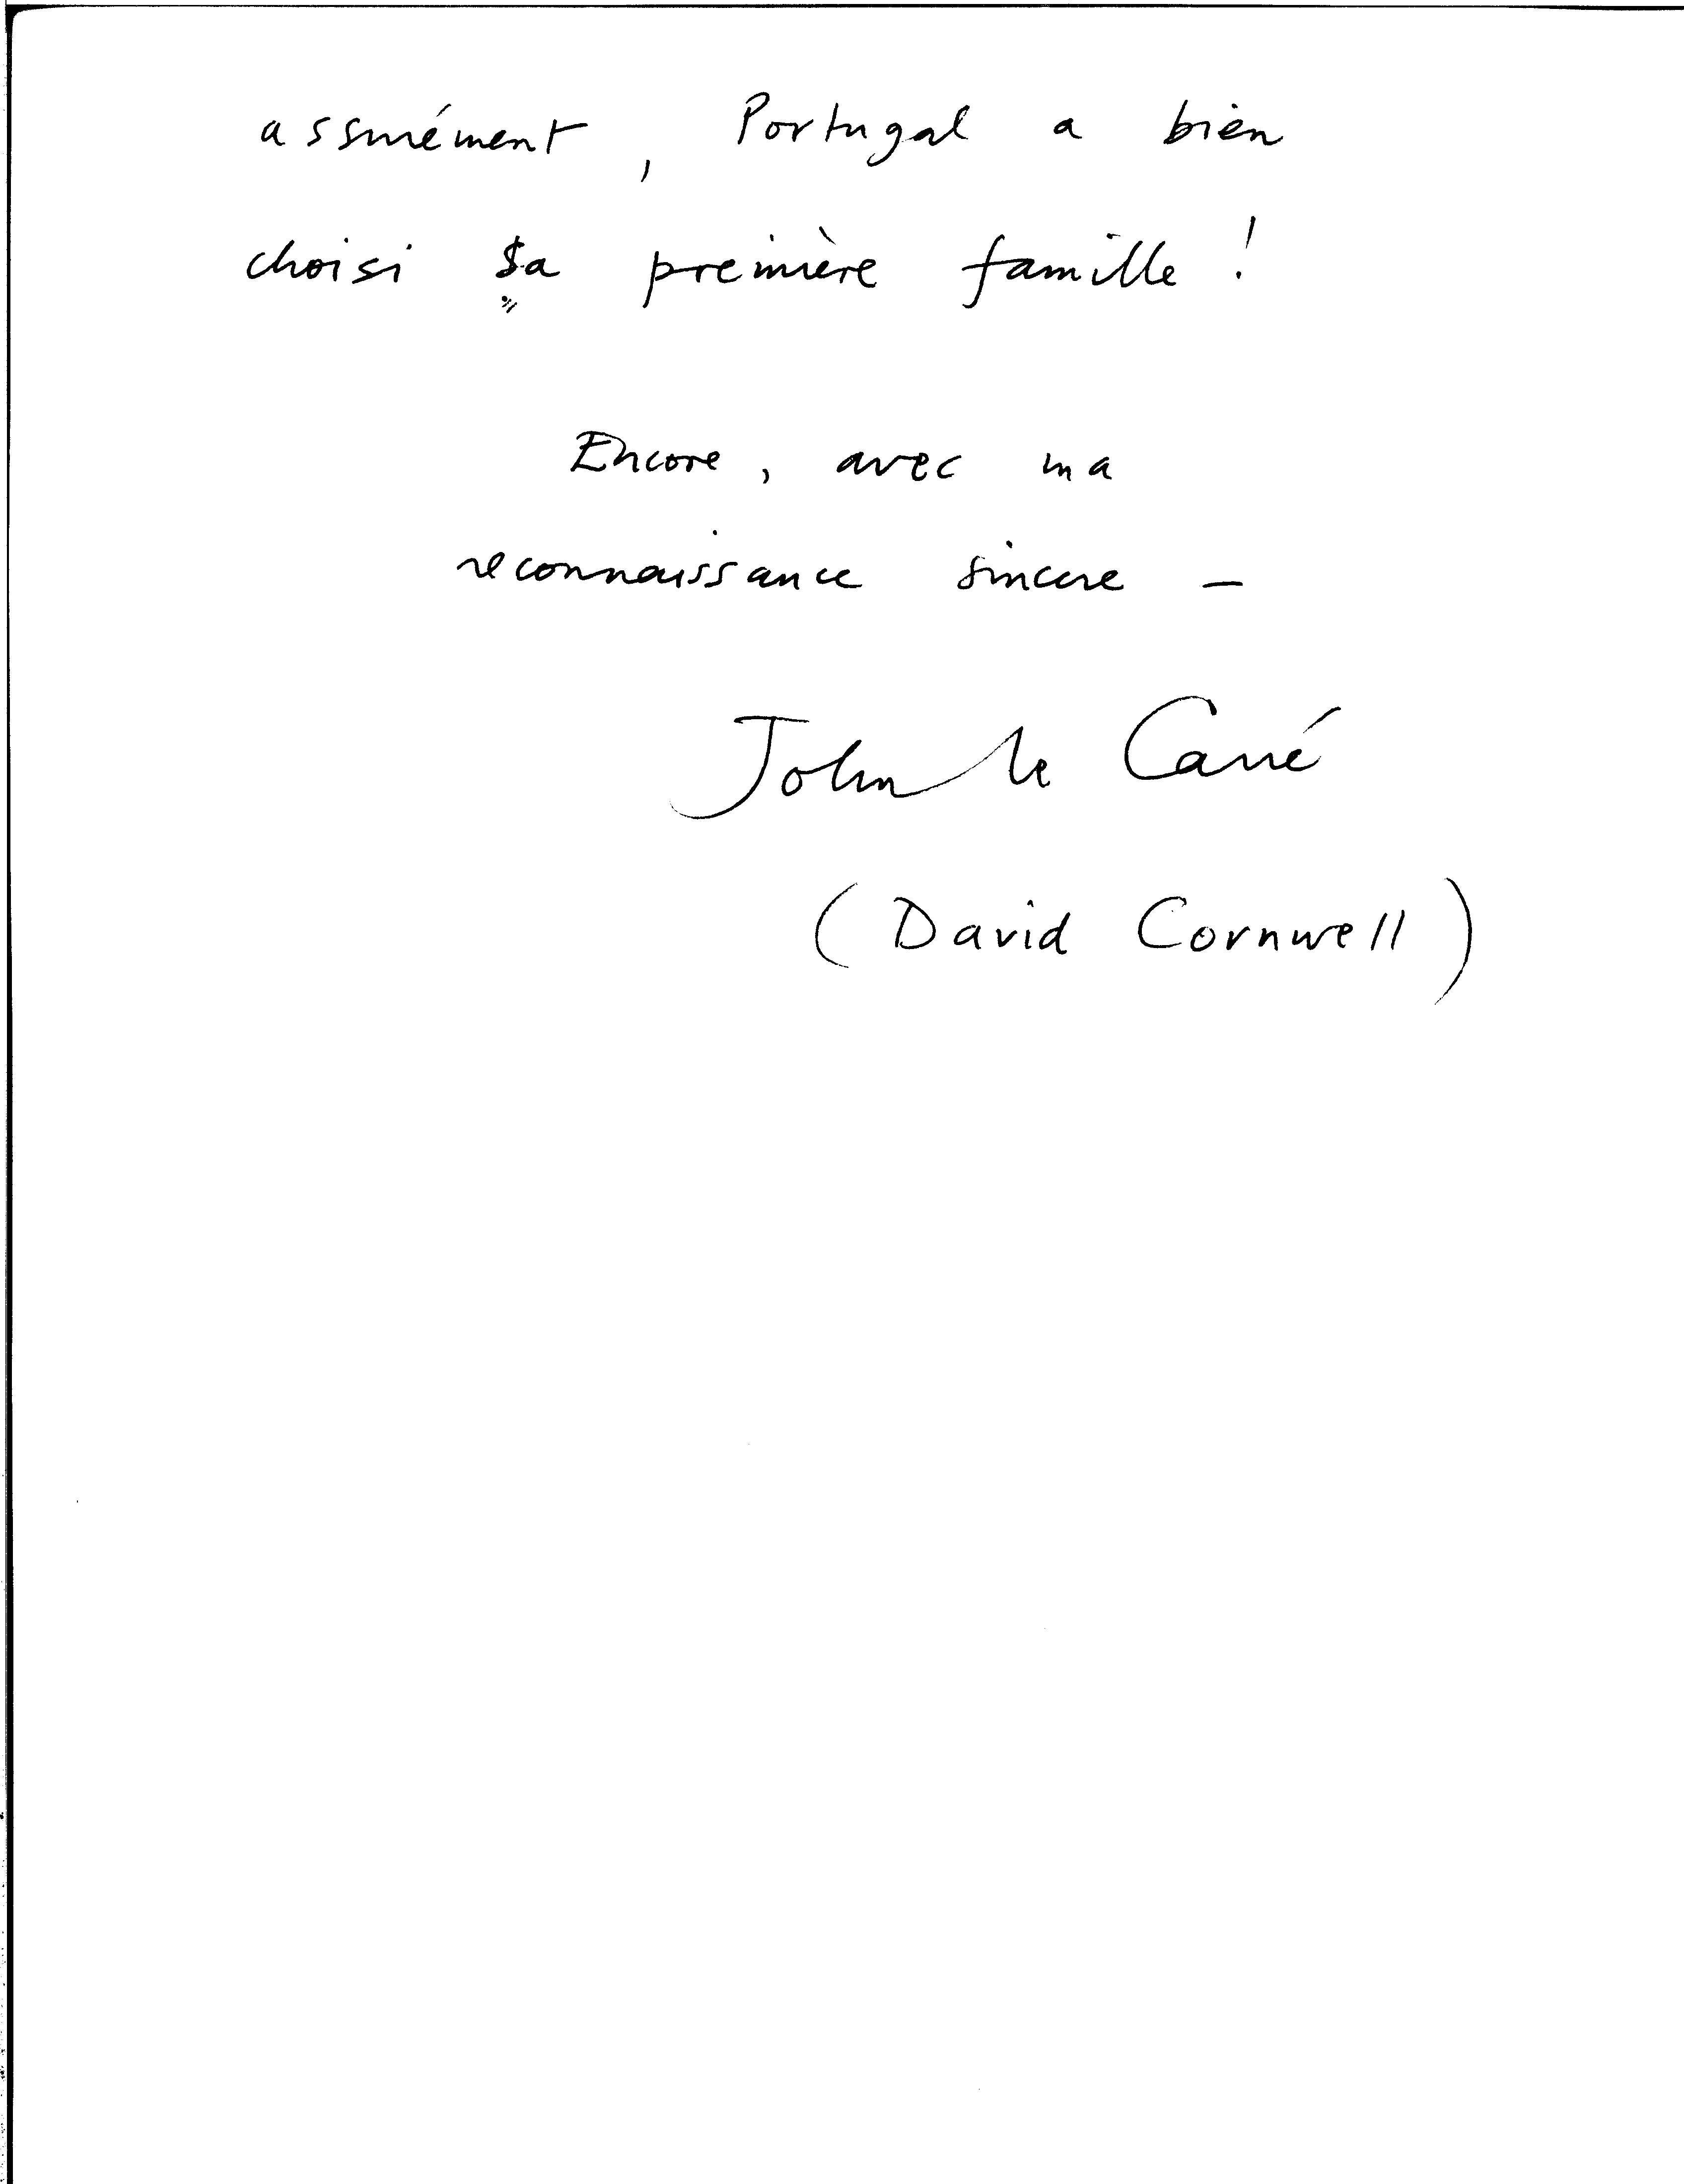 assurément, Portugal a bien
choisi sa première famille !
Encore, avec ma
reconnaissance sincere –
John le Carré
(David Cornwell)